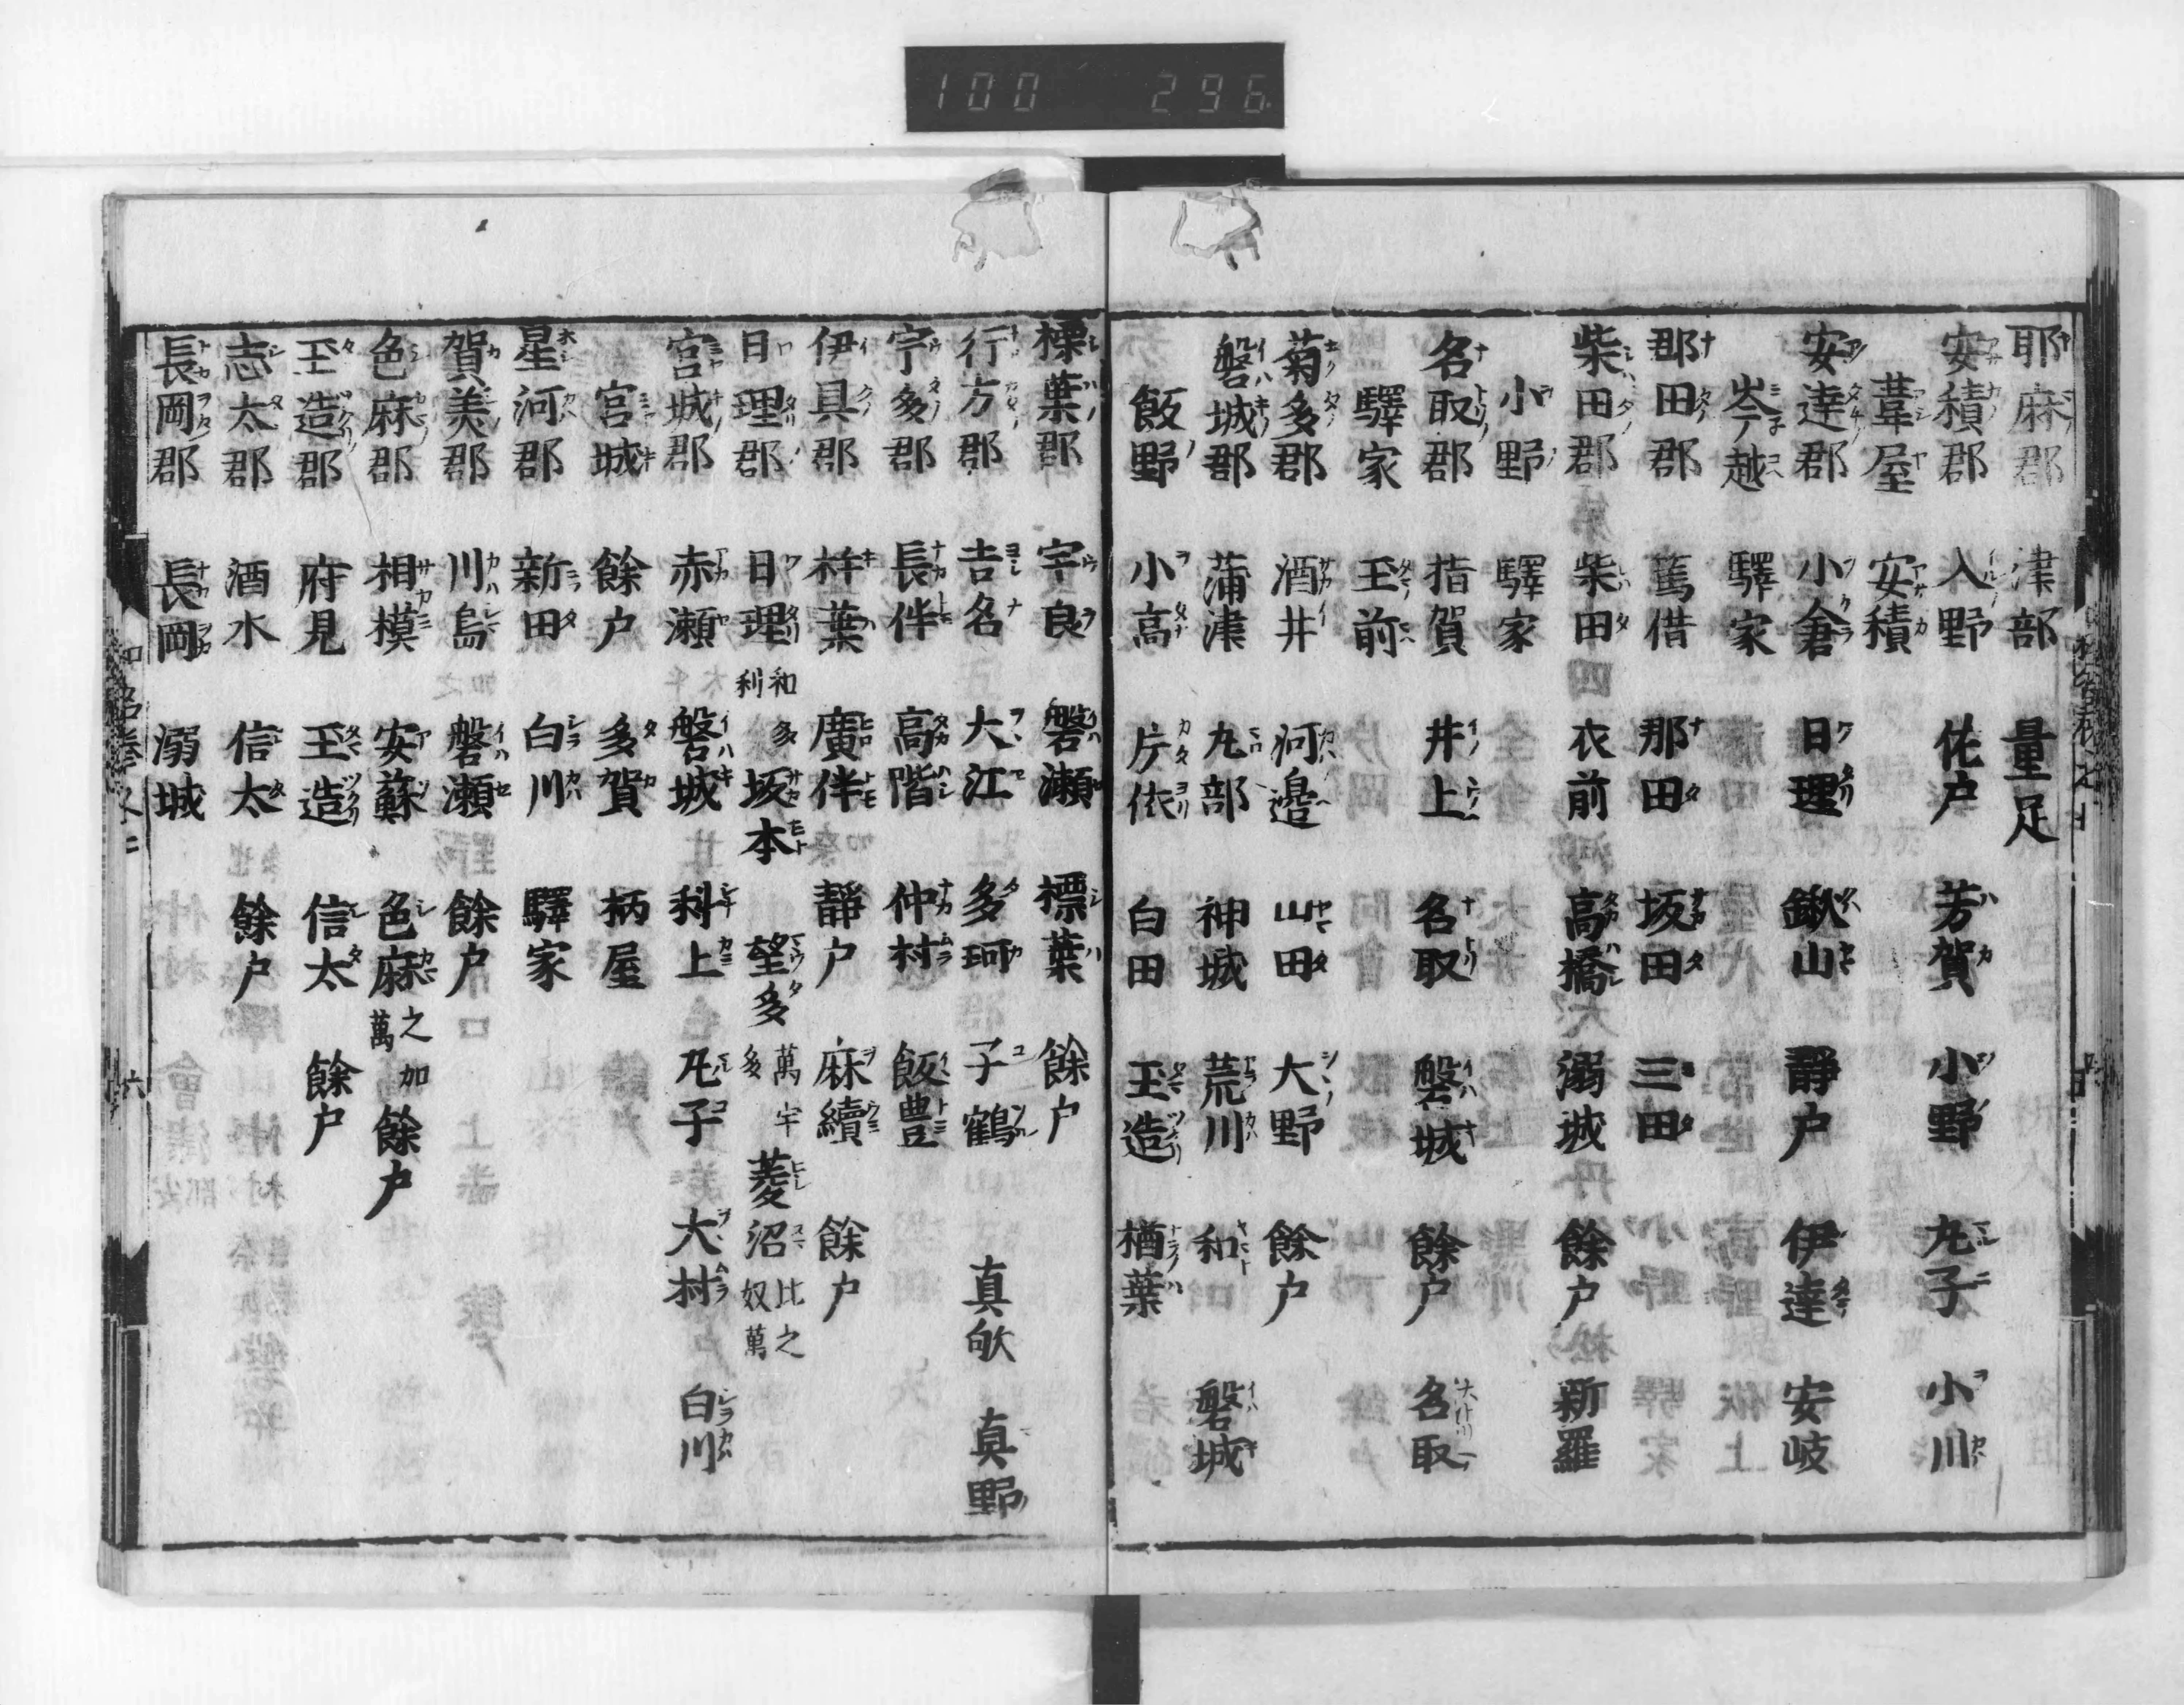 100 296
耶麻郡 津部 量足
安積郡 入野 佐戸 芳賀 小野 丸子 小川
葦屋 安積
安達郡 小倉 日理 鍬山 靜戸 伊達 安岐
岑越 驛家
郡田郡 篤借 那田 坂田 三田
柴田郡 柴田 衣前 高橋 溺城 餘戸 新羅
小野 驛家
名取郡 指賀 井上 名取 磐城 餘戸 名取
驛家 玉前
菊多郡 酒井 河邊 山田 大野 餘戸
磐城郡 蒲津 丸部 神城 荒川 和 磐城
飯野 小高 片依 白田 玉造 楢葉
標葉郡 宇良 磐瀬 標葉 餘戸
行方郡 吉名 大江 多珂 子鶴 真欤 真野
宇多郡 長伴 高階 仲村 飯豊
伊具郡 柈葉 廣伴 靜戸 麻續 餘戸
日理郡 日理和多利 坂本 望多萬宇多 菱沼比之奴萬
宮城郡 赤瀬 磐城 科上 丸子 大村 白川
宮城 餘戸 多賀 柄屋
星河郡 新田 白川 驛家
賀美郡 川島 磐瀬 餘戸
色麻郡 相模 安蘇 色麻之加萬 餘戸
玉造郡 府見 玉造 信太 餘戸
志太郡 酒水 信太 餘戸
長岡郡 長岡 溺城
六